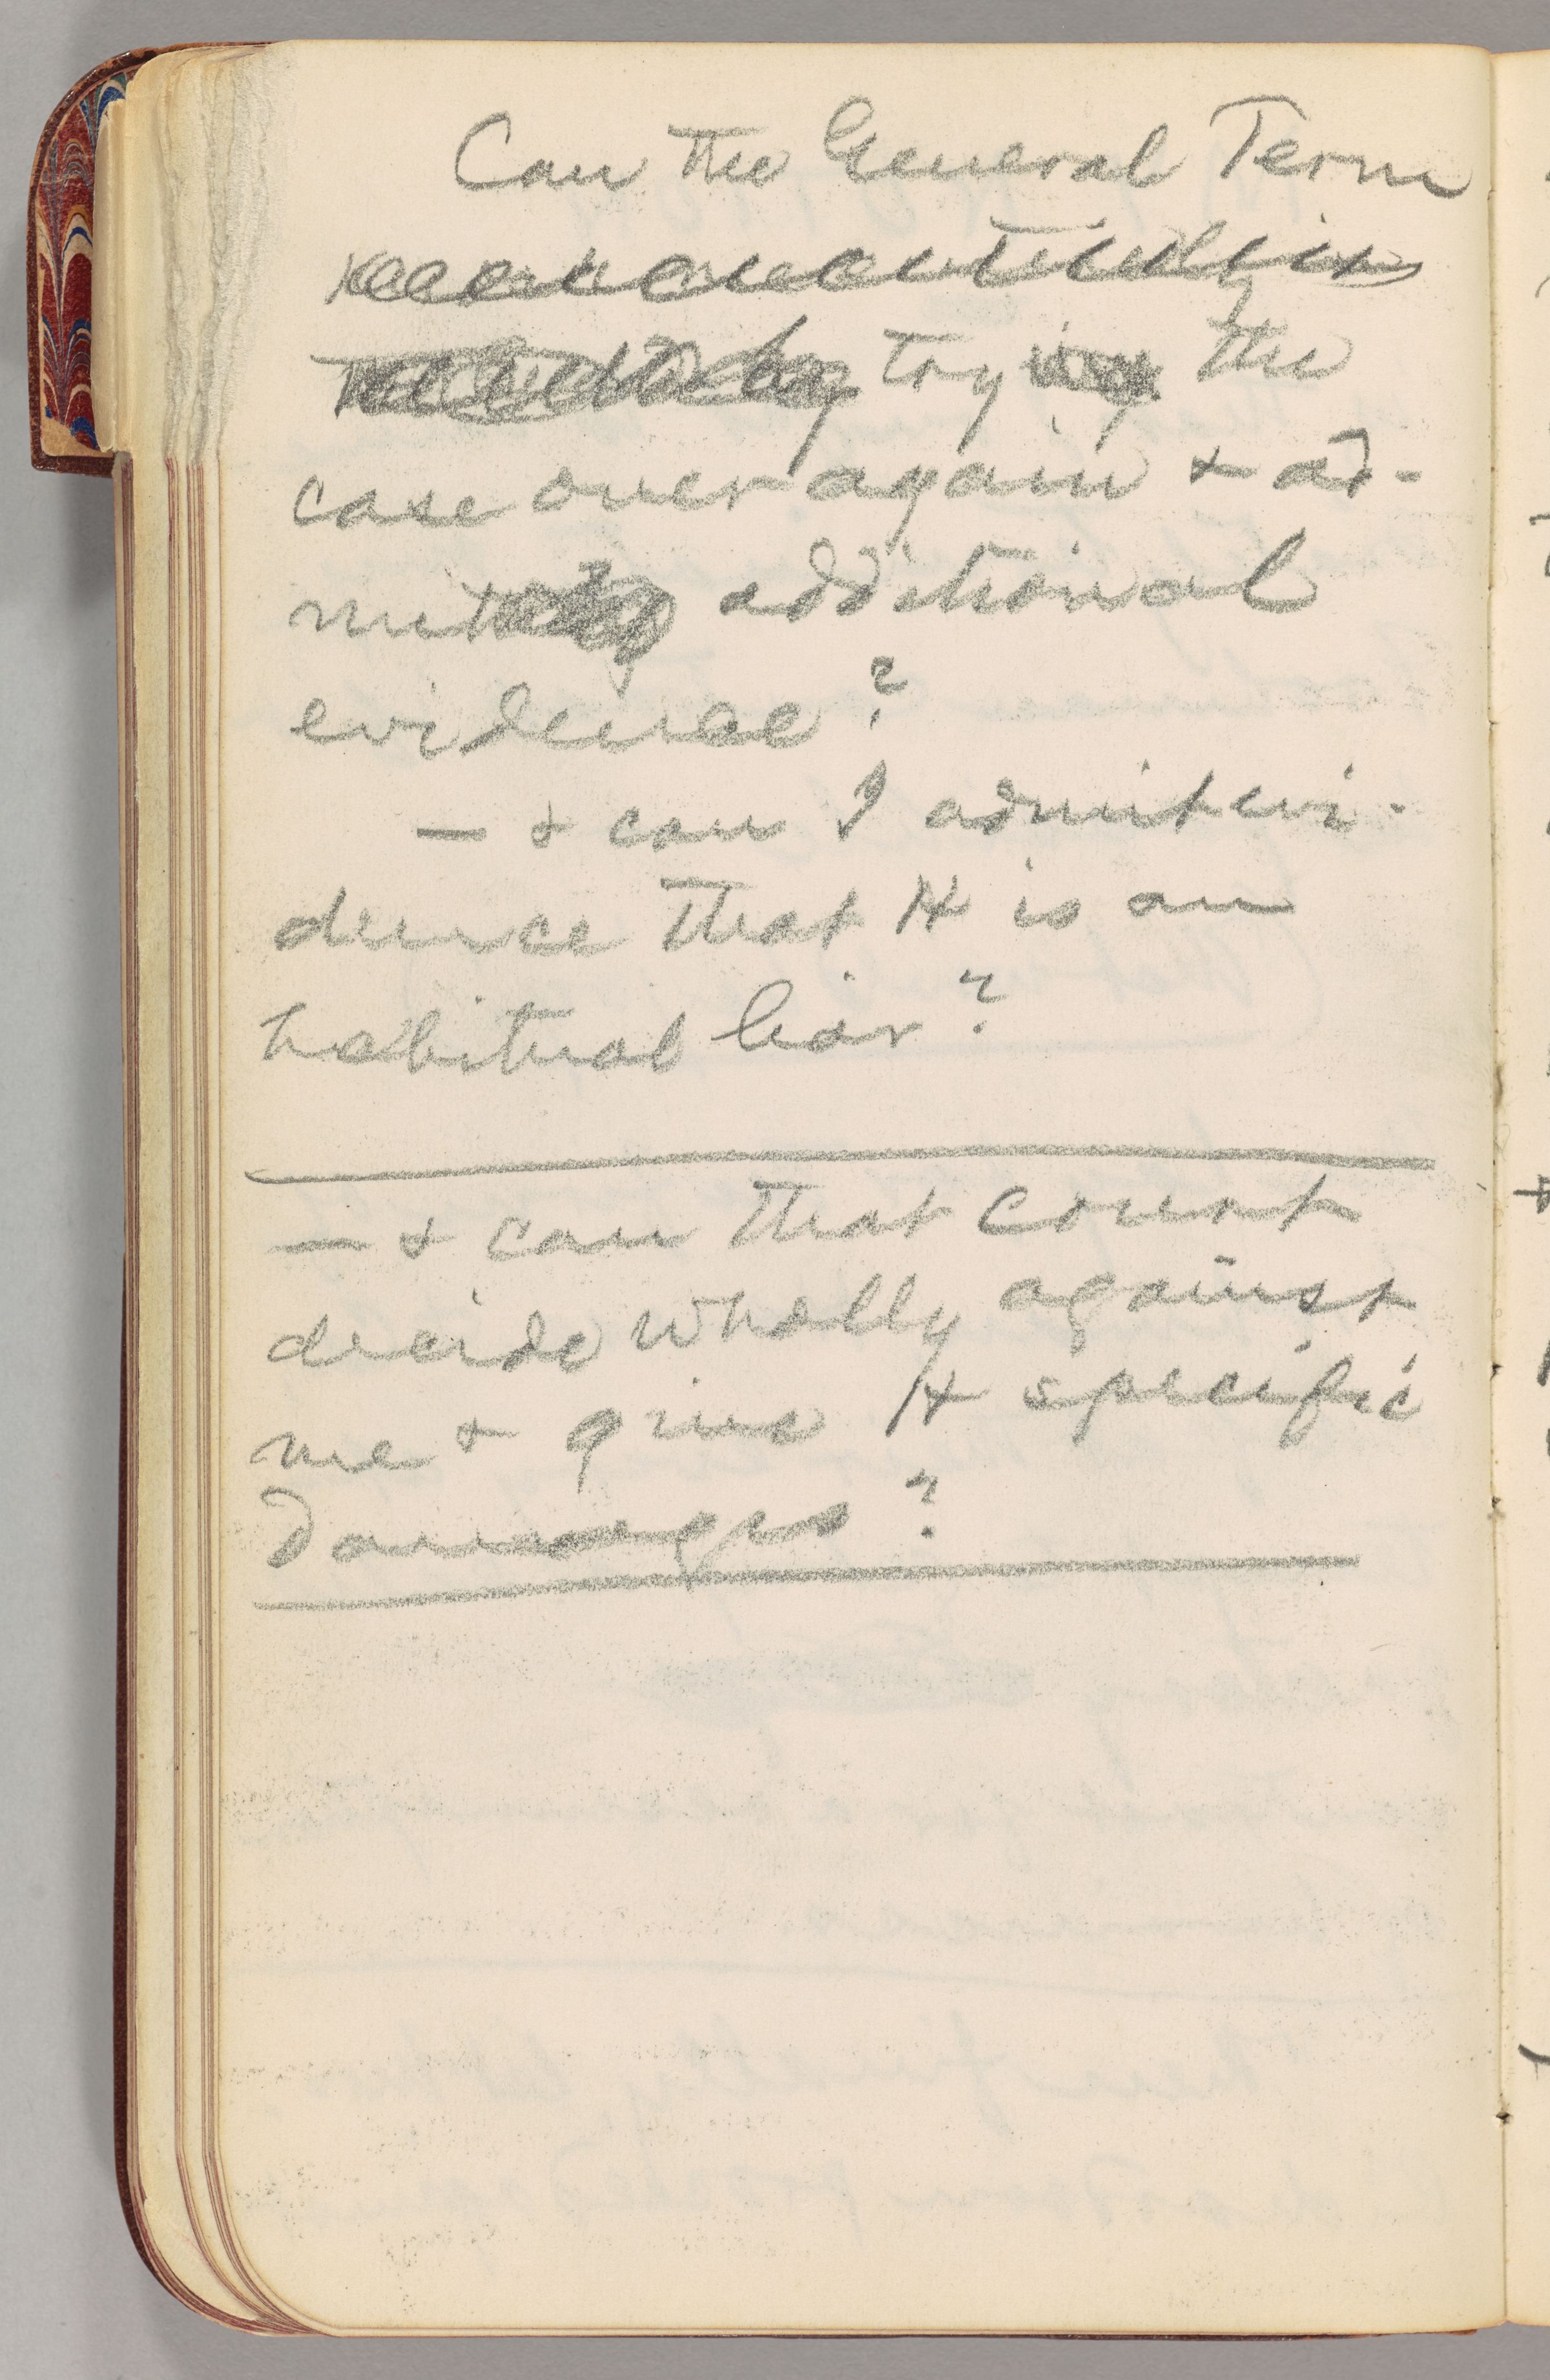 Can the General Term
try the
case over again & ad-
mit additional
evidence?
— & can I admit evi-
dence that H is an
habitual liar?
— & can that court
decide wholly against
me & give H specific
damages?